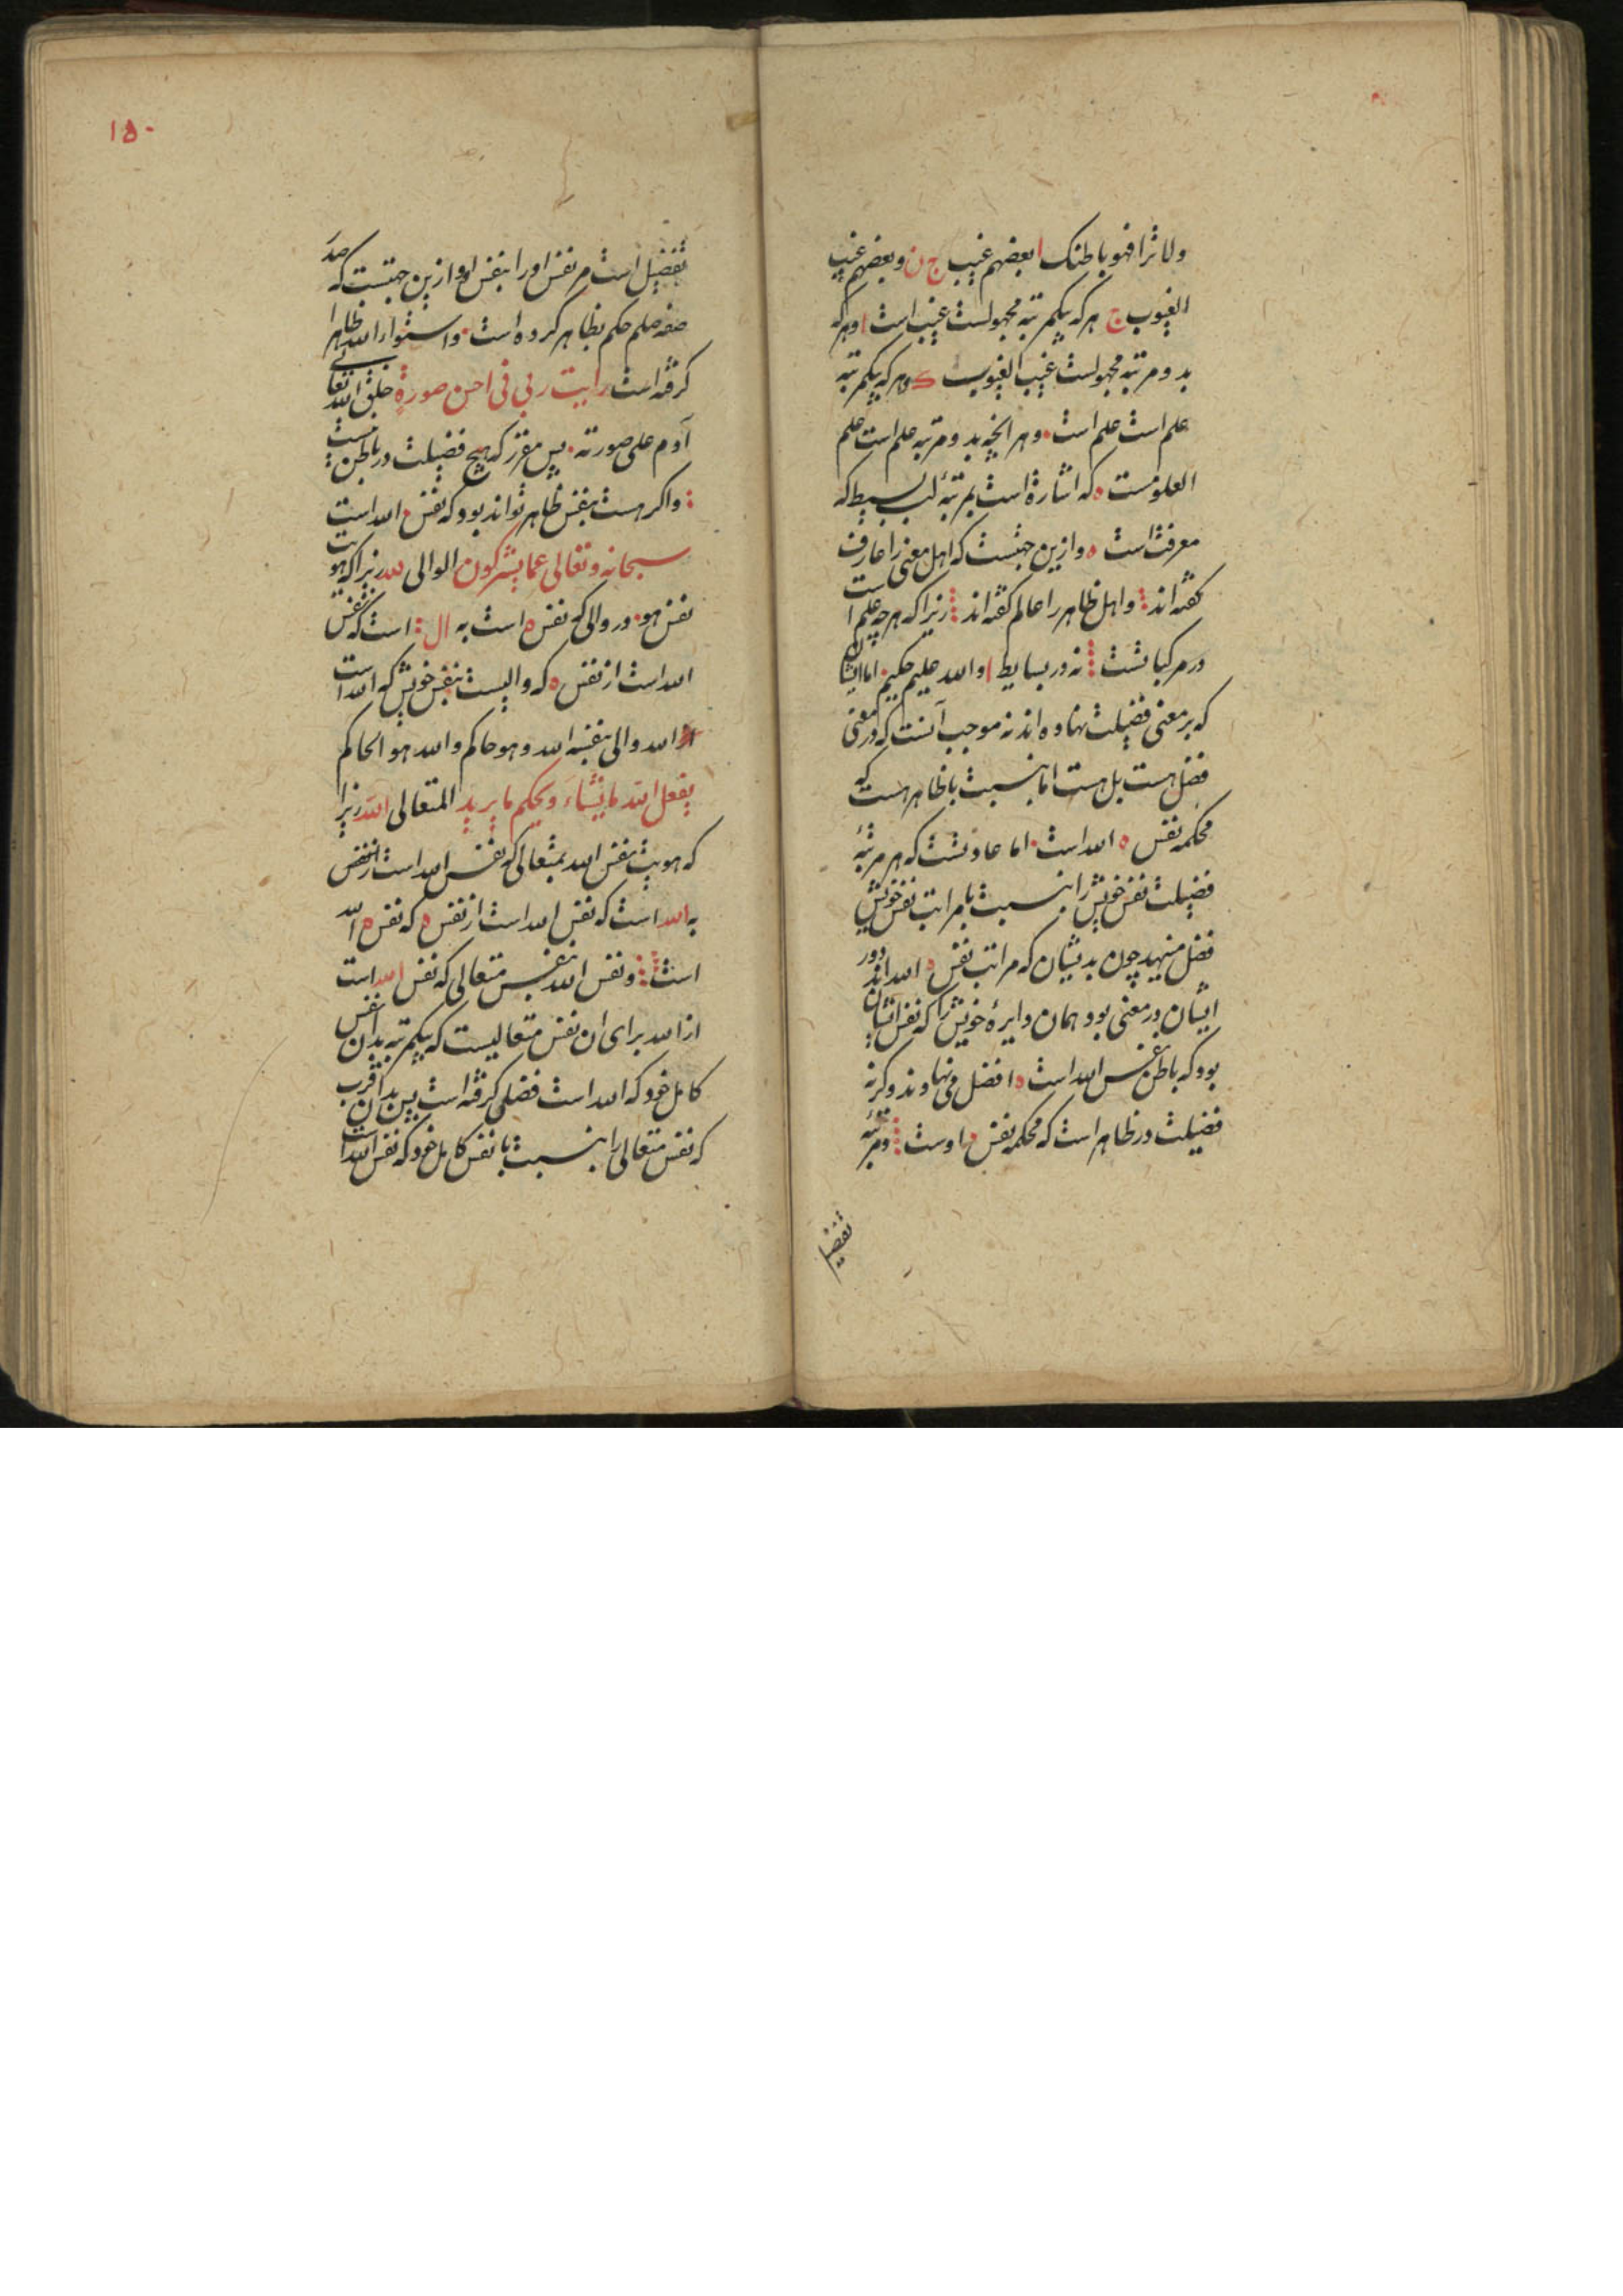 ولا تراه فهو باطنک ا بعضهم غیب ج ن و بعضهم غیب
الغیوب ج هر که بیکمرتبه مجهولست غیب است ا و هر که
بدو مرتبه مجهولست غیب الغیوب ک و هر که بیکمرتبه
علم است علم است و هر انچه بدو مرتبه علم است علم
العلومست ه که اشارة است بمرتبۀ لب بسیط که
معرفت است ه و ازین جهتست که اهل معنی را عارف
کفته اند و اهل ظاهر را عالم کفته اند زیرا که هر چه علم است
در مرکباتست نه در بسایط ا و الله علیم حکیم اما ایشان
که بر معنی فضیلت نهاده اند نه موجب آنست که در معنی
فضل هست بل هست اما بنسبت با ظاهر هست که
محکمه نفس ه الله است اما عادتست که هر مرتبۀ
فضیلت نفس خویش را بنسبت با مراتب نفس خویش
فضل منهید چون بدیشان که مراتب نفس ه الله اند دور
ایشان در معنی بود همان دایرۀ خویش را که نفس ایشان
بود که باطن نفس الله است ه افضل می نهادند و کرنه
فضیلت در ظاهر است که محکمه نفس ه اوست و مرتبۀ
تفضیل
۱۵۰
تفضیل است مر نفس او را بنفس او و ازین جهتست که صد
صفه صلم حکم بظاهر کرده است و استوار الله ظاهرا
کرفته است رایت ربی فی احسن صورة خلق الله تعالی
آدم علی صورته پس مقرر که هیچ فضیلت در باطن نیست
و اکر هست بنفس ظاهر تواند بود که نفس ه الله است
سبحانه و تعالی عما یشرکون الوالی لله زیرا که هویت
نفس هو در والی که نفس ه است به ال است که نفس
الله است از نفس ه که والیست بنفس خویش که الله است
از الله والی بنفسه الله و هو حاکم و الله هو الحاکم
یفعل الله ما یشاء و یحکم ما یرید المتعالی الله زیرا
که هویت نفس الله بمتعالی که نفس الله است از نفس
به الله است که نفس الله است از نفس ه که نفس ه الله
است و نفس الله بنفس متعالی که نفس الله است
از الله برای ان نفس متعالیست که بیکمرتبه بدان نفس
کامل خود که الله است فضلی کرفته است پس بدان قرب
که نفس متعالی را بنسبت با نفس کامل خود که نفس الله است